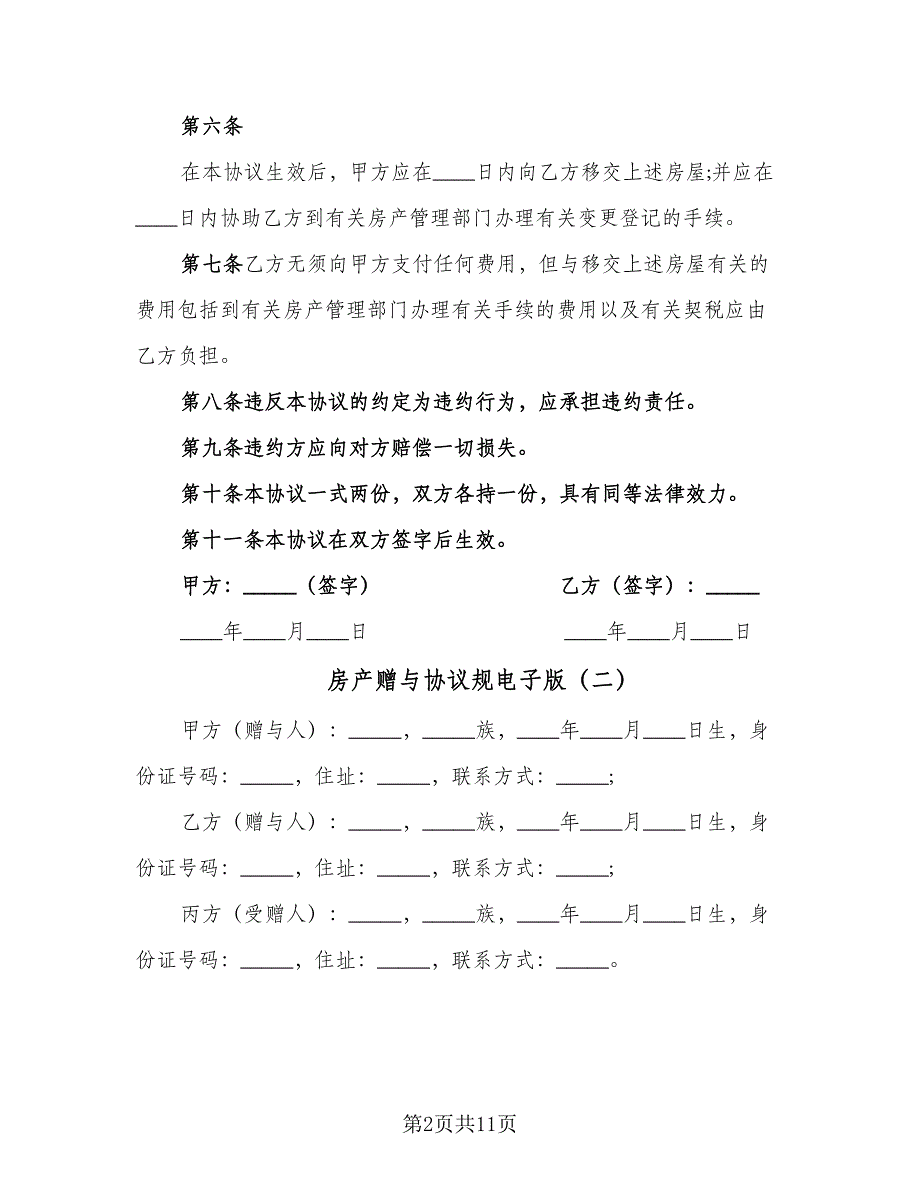 第六条
在本协议生效后，甲方应在____日内向乙方移交上述房屋;并应在
____日内协助乙方到有关房产管理部门办理有关变更登记的手续。
第七条乙方无须向甲方支付任何费用，但与移交上述房屋有关的
费用包括到有关房产管理部门办理有关手续的费用以及有关契税应由
乙方负担。
第八条违反本协议的约定为违约行为，应承担违约责任。
第九条违约方应向对方赔偿一切损失。
第十条本协议一式两份，双方各持一份，具有同等法律效力。
第十一条本协议在双方签字后生效。
甲方：_____（签字） 乙方（签字）：_____
____年____月____日 ____年____月____日
房产赠与协议规电子版（二）
甲方（赠与人）：_____，_____族，____年____月____日生，身
份证号码：_____，住址：_____，联系方式：_____;
乙方（赠与人）：_____，_____族，____年____月____日生，身
份证号码：_____，住址：_____，联系方式：_____;
丙方（受赠人）：_____，_____族，____年____月____日生，身
份证号码：_____，住址：_____，联系方式：_____。
第2页共11页